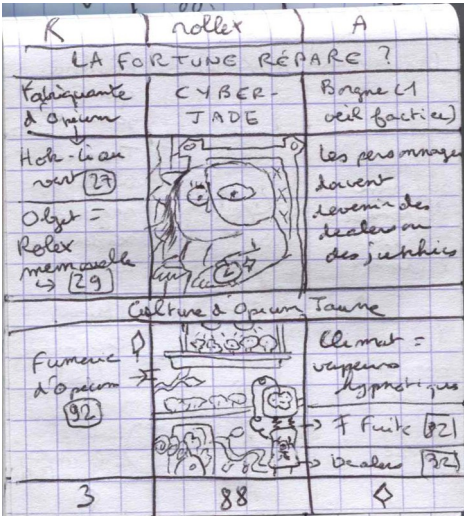 R rollex A
LA FORTUNE RÉPARE ?
Fabriquante
d'opium
CYBER-
JADE
Borgne (1
œil factice)
Hok-liou
vert 27
Objet =
Rolex
memorable
↳ 29
Les personnages
doivent
devenir des
dealers ou
des justiciers
Culture d'opium Jaune
Fumerie
d'opium
92
Climat =
vapeurs
hypnotiques
→ 7 Fuite 82
→ Dealers 32
3 88 ◇